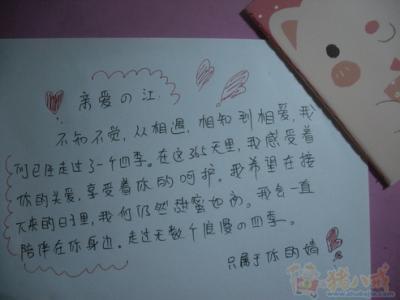 亲爱の江.
不知不觉,从相遇,相知到相爱,我
们已经走过了一个四季。在这365天里,我感受着
你的关爱,享受着你的呵护。我希望在接
下来的日子里,我们仍然甜蜜如初。我会一直
陪伴在你身边。走过无数个浪漫の四季。
只属于你的婧
猪八戒
www.zhubajie.com